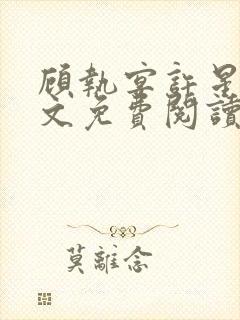 顧執宴許星
文免費閱讀
莫離念